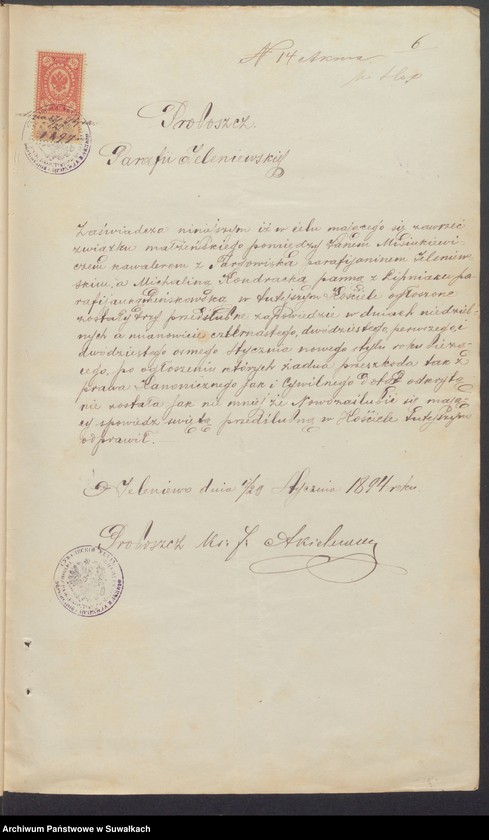 6
N 14 Aktu
Proboszcz
Parafii Jeleniewskiej
Zaświadcza niniejszym iż w celu mającego się zawrzeć
związku małżeńskiego pomiędzy Janem Misiukiewi-
czem kawalerem z Targowiska parafijaninem Jeleniew-
skim, a Michaliną Kondracką panną z Lipniaka pa-
rafijanką w tutejszym Kościele ogłoszone
zostały trzy przedślubne zapowiedzie w dniach niedziel-
nych a mianowicie czternastego, dwódziestego pierwszego, i
dwódziestego osmego Stycznia nowego stylu roku bieżą-
cego, po ogłoszeniu których żadna przeszkoda tak z
prawa Kanonicznego jak i Cywilnego dotąd odkrytą
nie została jak nie mniéj że Nowozaślubić się mają-
cy spowiedz świętą przedślubną w Kościele tutejszym
odprawili.
Jeleniewo dnia Stycznia 1894 roku
Proboszcz Ks: J.
Archiwum Państwowe w Suwałkach